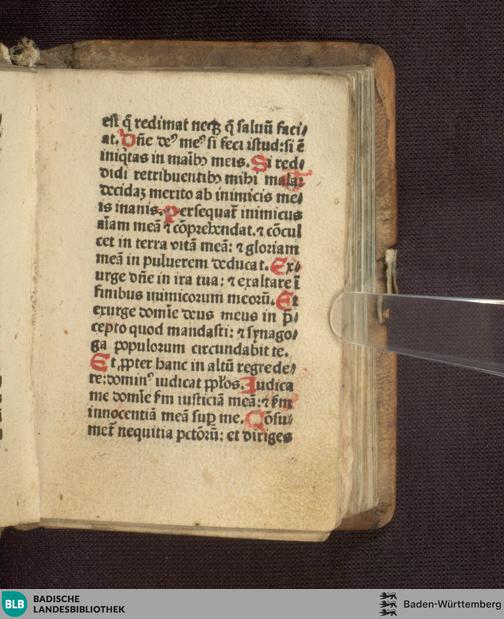 est q̄ redimat neqꝫ q̄ saluū faci⸗
at. Dn̄e de᷒ me᷒ si feci istud: si ē
iniqͥtas in maībꝰ meis. Si red⸗
didi retribuentibꝰ mihi mala:
decidaꝫ merito ab inimicis me⸗
is inanis. Persequat᷑ inimicus
aīam meā ⁊ cōprehendat. ⁊ cōcul
cet in terra vitā meā: ⁊ gloriam
meā in puluerem deducat. Ex⸗
urge dn̄e in ira tua: ⁊ exaltare ī
finibus inimicorum meorū. Et
exurge domīe deus meus in p̄⸗
cepto quod mandasti: ⁊ synago⸗
ga populorum circundabit te.
Et ꝓpter hanc in altū regrede⸗
re: domin᷒ iudicat ppl̄os. Iudica
me domīe s̄m iusticiā meā: ⁊ s̄m
innocentiā meā suꝑ me. Cōsu⸗
met᷑ nequitia pctōrū: et diriges
BLB
BADISCHE
LANDESBIBLIOTHEK
Baden-Württemberg